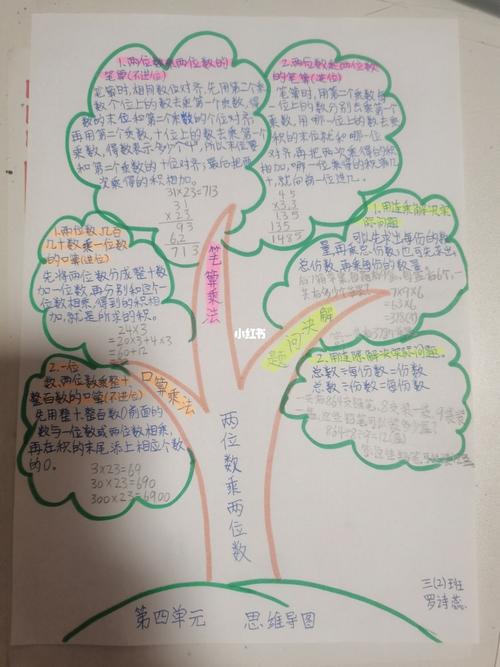 1.两位数乘两位数的
笔算(不进位)
笔算时,相同数位对齐,先用第二个乘
数个位上的数去乘第一个乘数,得
数的末位和第二个乘数的个位对齐,
再用第二个乘数,十位上的数去乘第一个
乘数,得数表示多少个"十",所以末位要
和第二个乘数的十位对齐,最后把两
次乘得的积相加。
31×23=713
31
×23
93
62
713
2.两位数乘两位数
的笔算(进位)
笔算时,用第二个乘数每
一位上的数分别去乘第一个
乘数,用哪一位上的数去乘
积的末位就和哪一位
对齐,再把两次乘得的积
相加,哪一位乘得的积满几
十,就向前一位进几。
45
×33
135
135
1485
1.两位数,几百
几十数乘一位数
的口算(进位)
先将两位数分成整十数
加一位数,再分别和这个一
位数相乘,得到的积相
加,就是所求的积。
24×3
=20×3+4×3
=60+12
2.一位
数、两位数乘整十、
整百数的口算(不进位)
先用整十、整百数0前面的
数与一位数或两位数相乘,
再在积的末尾添上相应个数
的0。
3×23=69
30×23=690
300×23=6900
1.用连乘解决实
际问题
可以先求出每份的数
量,再乘总份数;也可先求出
总份数,再乘每份的数量
=7×9×6
=63×6
=378
2.用连除解决实际问题。
总数÷每份数=份数
总数÷份数=每份数
864÷8÷9=12(盒)
笔算乘法
口算乘法
问题解决
两位数乘两位数
小红书
第四单元 思维导图
三(2)班
罗诗蕊